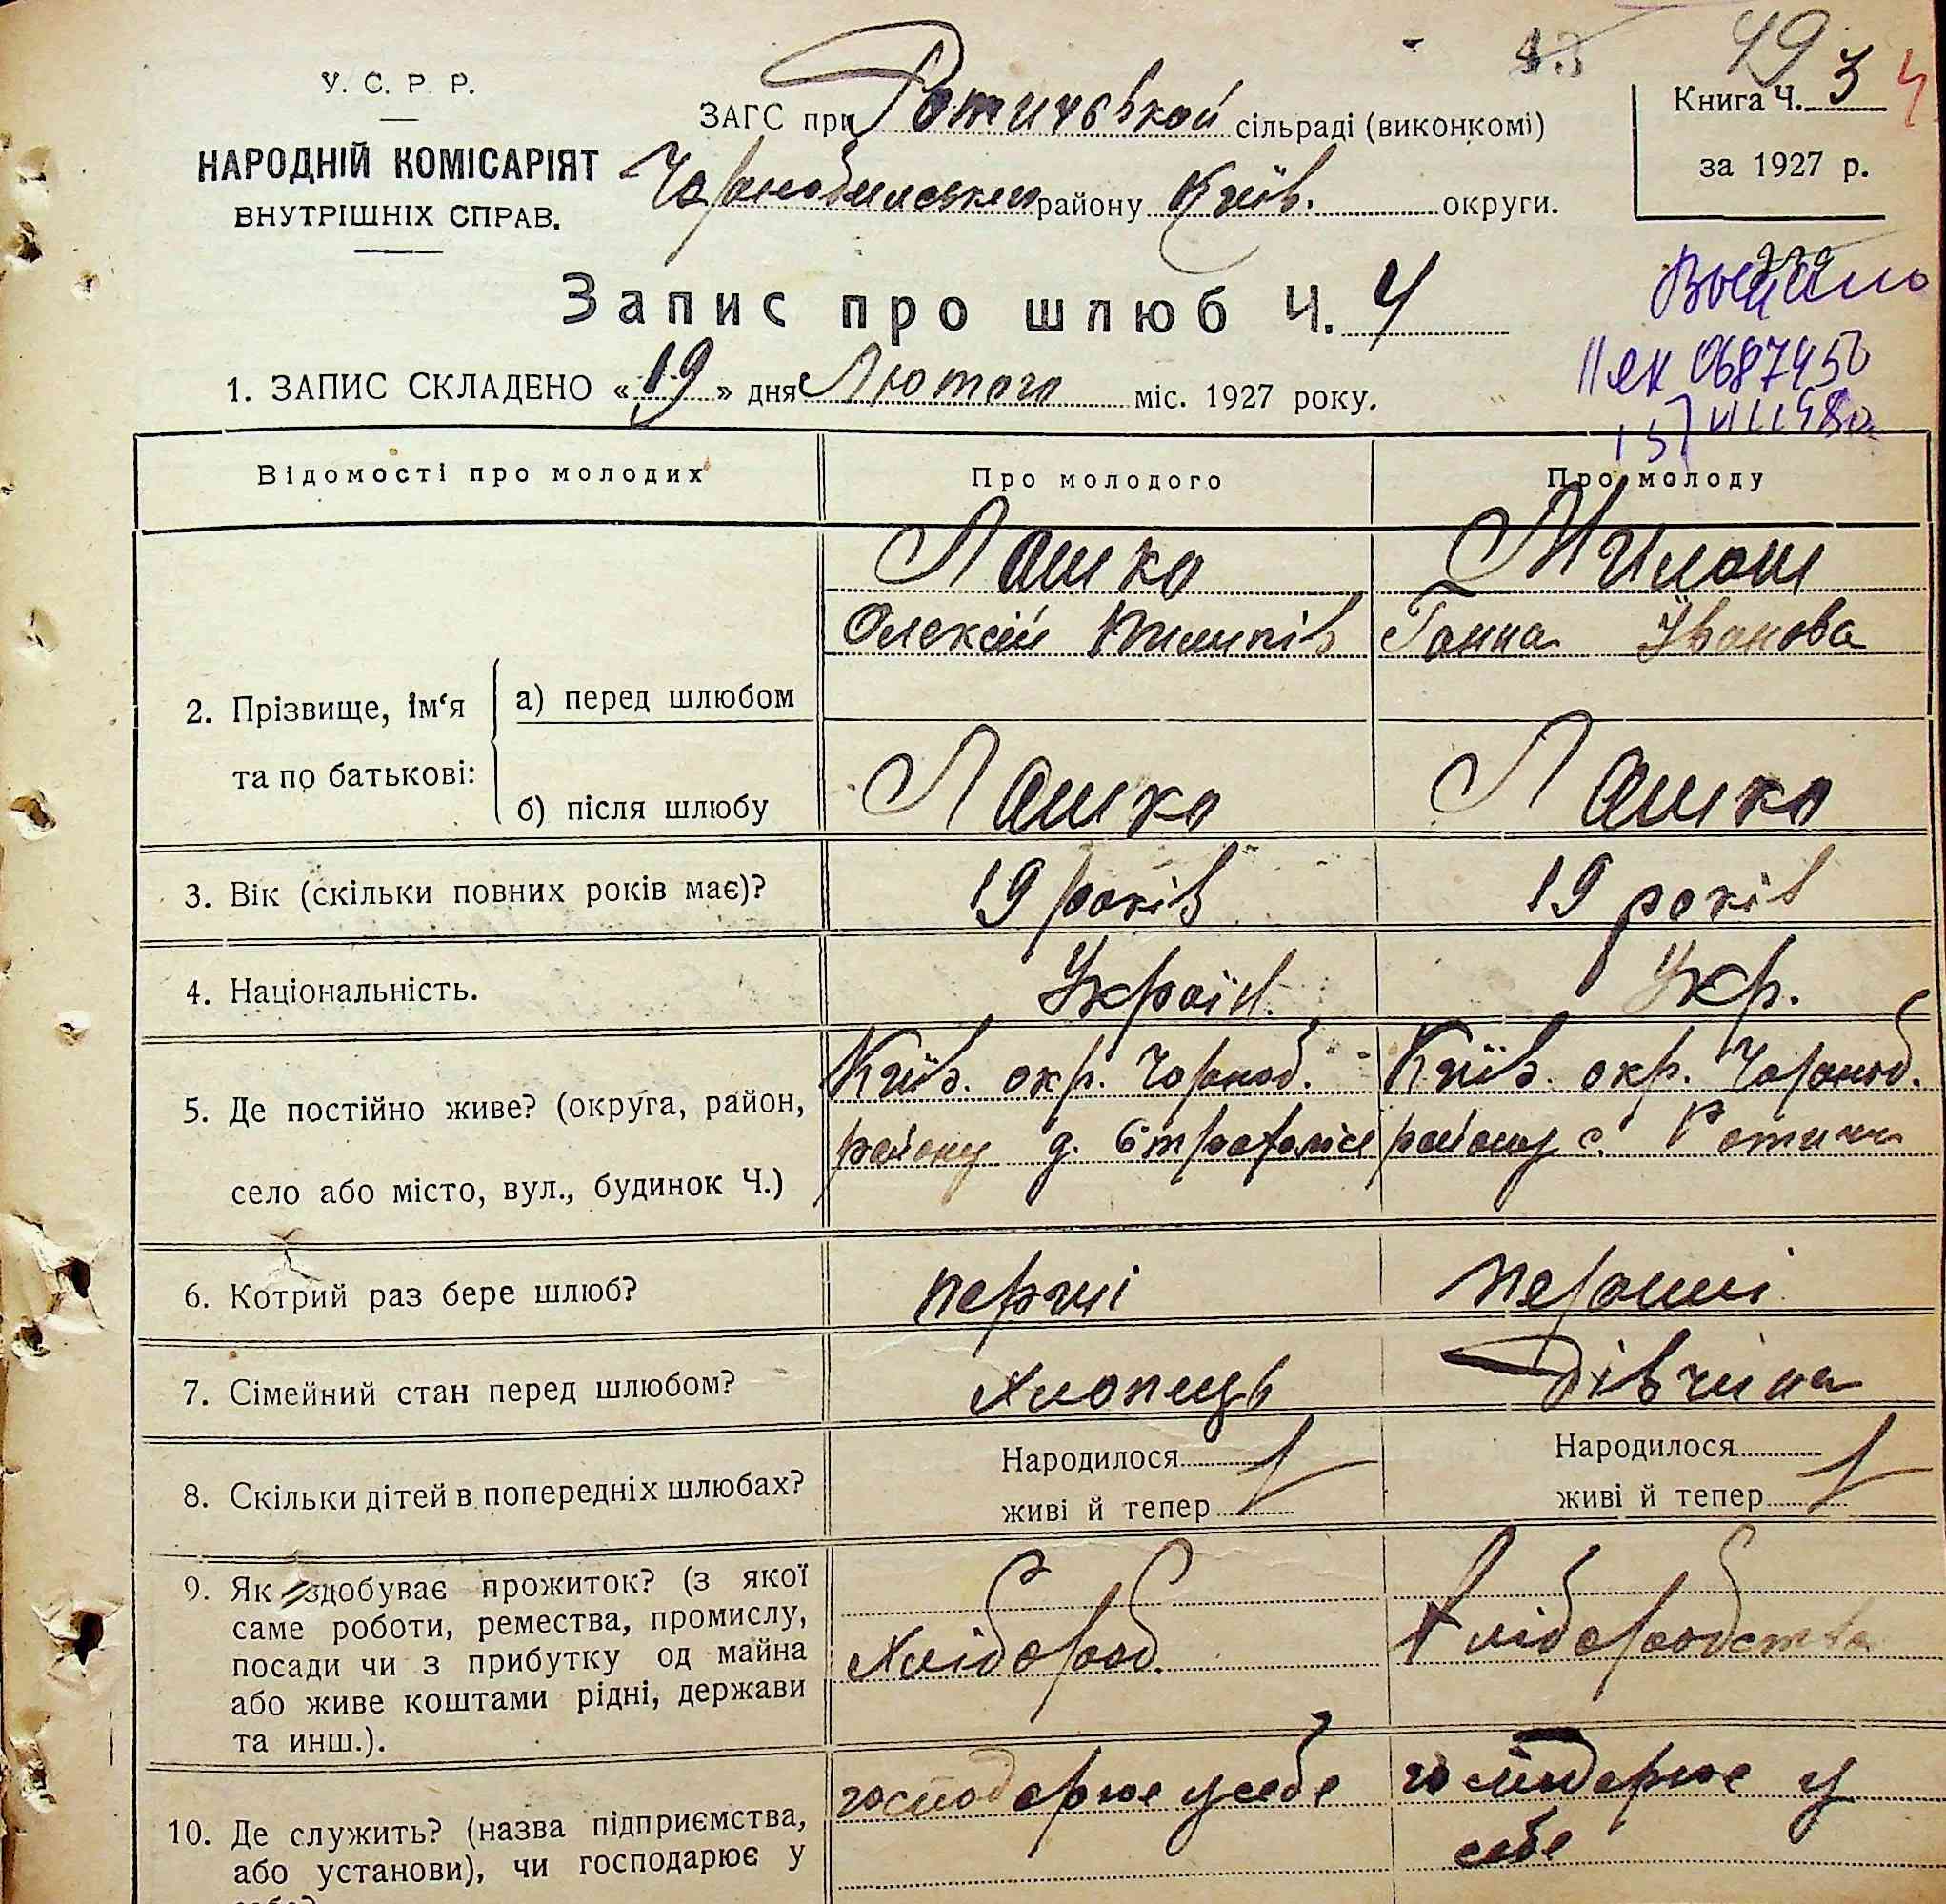 49
У. С. Р. Р.
НАРОДНІЙ КОМІСАРІЯТ
ВНУТРІШНІХ СПРАВ.
ЗАГС при Ротичівской сільраді (виконкомі)
Чорнобильськ району Київ. округи.
Книга Ч. 3 4
за 1927 р.
Запис про шлюб Ч. 4
1. ЗАПИС СКЛАДЕНО «19» дня Лютого міс. 1927 року.
II ЯК 0687450
Відомості про молодих
Про молодого
Про молоду
2. Прізвище, ім‘я та по батькові:
а) перед шлюбом
Лашко
Олексій Пилипів
Жилош
Ганна Іванова
б) після шлюбу
Лашко
Лашко
3. Вік (скільки повних років має)?
19 років
19 років
4. Національність.
Україн.
Укр.
5. Де постійно живе? (округа, район,
село або місто, вул., будинок Ч.)
Київ. окр. Чорноб.
району д. Страхоліся
Київ. окр. Чорноб.
району с. Ротичи
6. Котрий раз бере шлюб?
перші
перший
7. Сімейний стан перед шлюбом?
хлопець
дівчина
8. Скільки дітей в попередніх шлюбах?
Народилося
живі й тепер
Народилося
живі й тепер
9. Як здобуває прожиток? (з якої
саме роботи, ремества, промислу,
посади чи з прибутку од майна
або живе коштами рідні, держави
та инш.).
Хлібороб.
Хліборобства
10. Де служить? (назва підприємства,
або установи), чи господарює у
господарює у себе
господарює у
себе